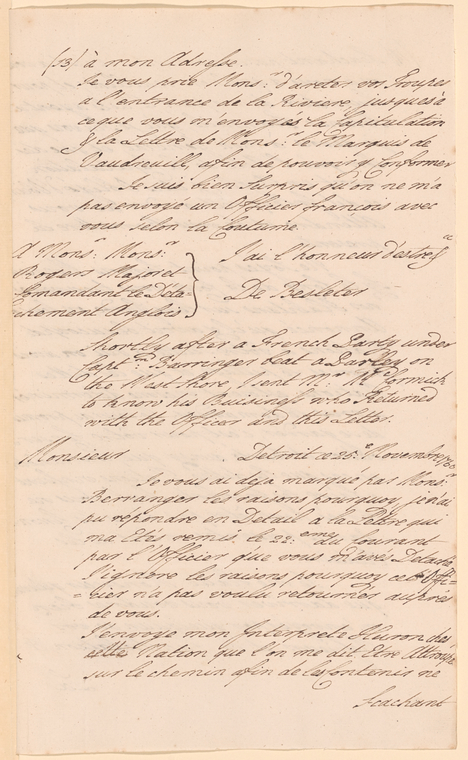 (53) à mon Adresse.
Je vous prie Mons.r d'areter vos Troupes
a l'entrance de la Riviere, jusques'a
ceque vous m'envoyés la Capitulation
& la Lettre de Mons.r le Marquis de
Vaudreuill, afin de pouvoir y Conformer
Je suis bien Surpris qu'on ne m'a
pas envoyé un Officier francois avec
vous selon la Coutume.
J'ai l'honneur d'estre &c
A Mons.r Mons.r
Rogers Major et
Comandant le Déta-
chement Anglois
De Besleter
Shortly after a French Party under
Capt.n Barringer beat a Parley on
the West Shore, I sent M.r McCormick
to know his Buisiness who Returned
with the Officer and this Letter.
Monsieur
Detroit ce 25.e Novembre
Je vous ai déja marqué par Mons.r
Berranger les raisons pourquoy, je n'ai
pu repondre en Detail a la Lettre qui
ma Etés remis le 22.eme du Courant
par l'Officier que vous m'avés Detaché
J'ignore les raisons pourquoy ce Offi-
=cier n'a pas voulu retourner auprés
de vous.
J'envoye mon Interprete Huron chés
cette Nation que l'on me dit Etre Attroupé
sur le chemin afin de les Contenir ne
Scachant